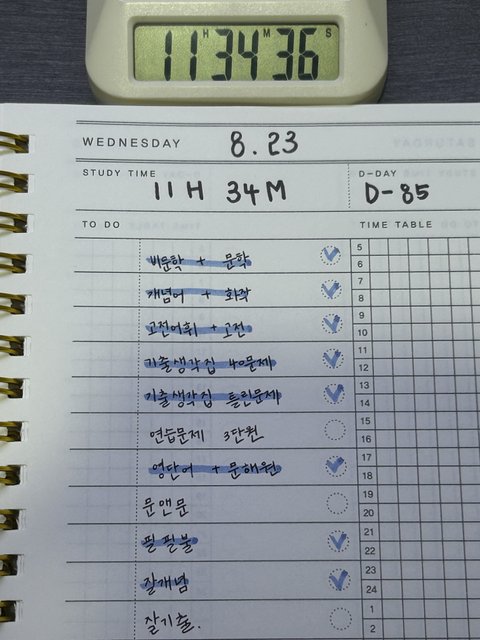 11H34M36S
WEDNESDAY 8.23
STUDY TIME D-DAY
11H 34M D-85
TO DO TIME TABLE
비문학 + 문학
개념어 + 화작
고전어휘 + 고전
기출생각집 40문제
기출생각집 틀린문제
연습문제 3단원
영단어 + 문해원
문앤문
필필불
잘개념
잘기출.
5
6
7
8
9
10
11
12
13
14
15
16
17
18
19
20
21
22
23
24
1
2